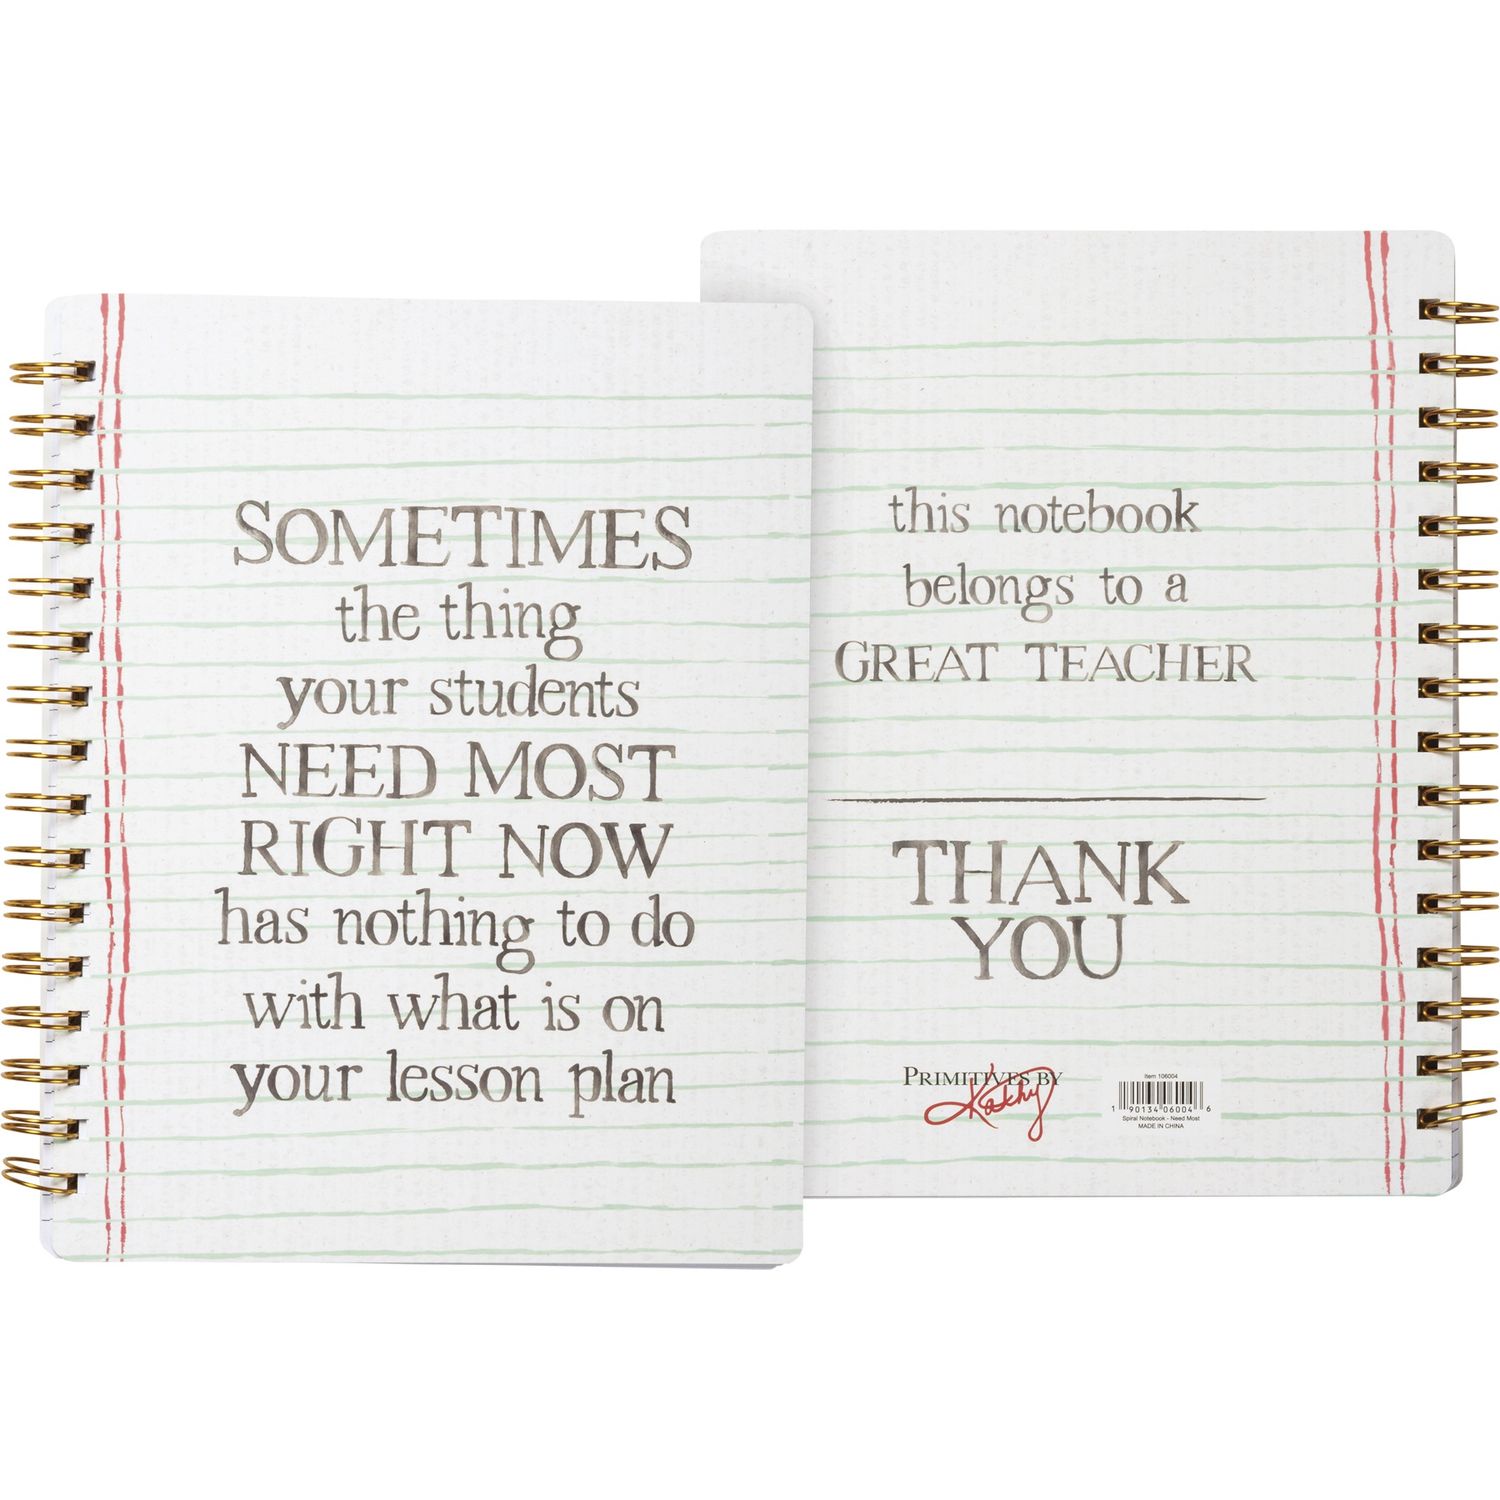 SOMETIMES
the thing
your students
NEED MOST
RIGHT NOW
has nothing to do
with what is on
your lesson plan
this notebook
belongs to a
GREAT TEACHER
THANK
YOU
PRIMITIVES BY
Kathy
Item 106004
1 90134 06004 6
Spiral Notebook - Need Most
MADE IN CHINA